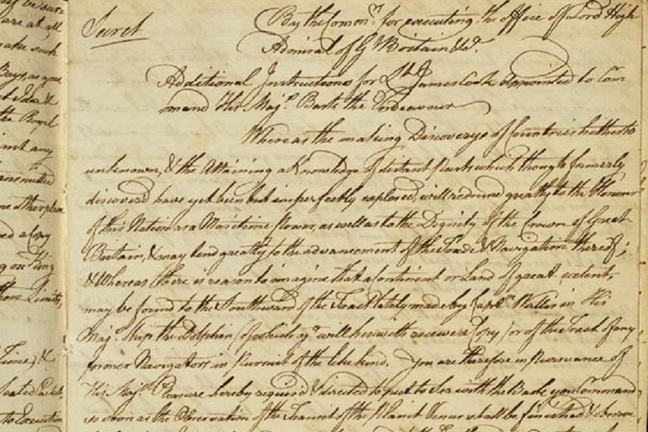 Secret
By the Commrs. for executing the office of Lord High
Admiral of Gt. Britain &ca.
Additional Instructions for Lt. James Cook Appointed to Com-
mand His Majs. Bark the Endeavour
Whereas the making Discoverys of Countries hitherto
unknown, & the Attaining a Knowledge of distant Parts which though formerly
discover'd have yet been but imperfectly explored, will redound greatly to the Honour
of this Nation as a Maritime Power, as well as to the Dignity of the Crown of Great
Britain, & may tend greatly to the advancement of the Trade & Navigation thereof;
& Whereas there is reason to imagine that a Continent or Land of great extent,
may be found to the Southward of the Track lately made by Captn. Wallis in His
Majs. Ship the Dolphin (of which you will herewith receive a Copy) or of the Track of any
former Navigators in Pursuit of the like kind. You are therefore in Pursuance of
His Majs. Pleasure hereby requir'd & directed to put to Sea with the Bark you Command
so soon as the Observation of the Transit of the Planet Venus shall be finished & observe